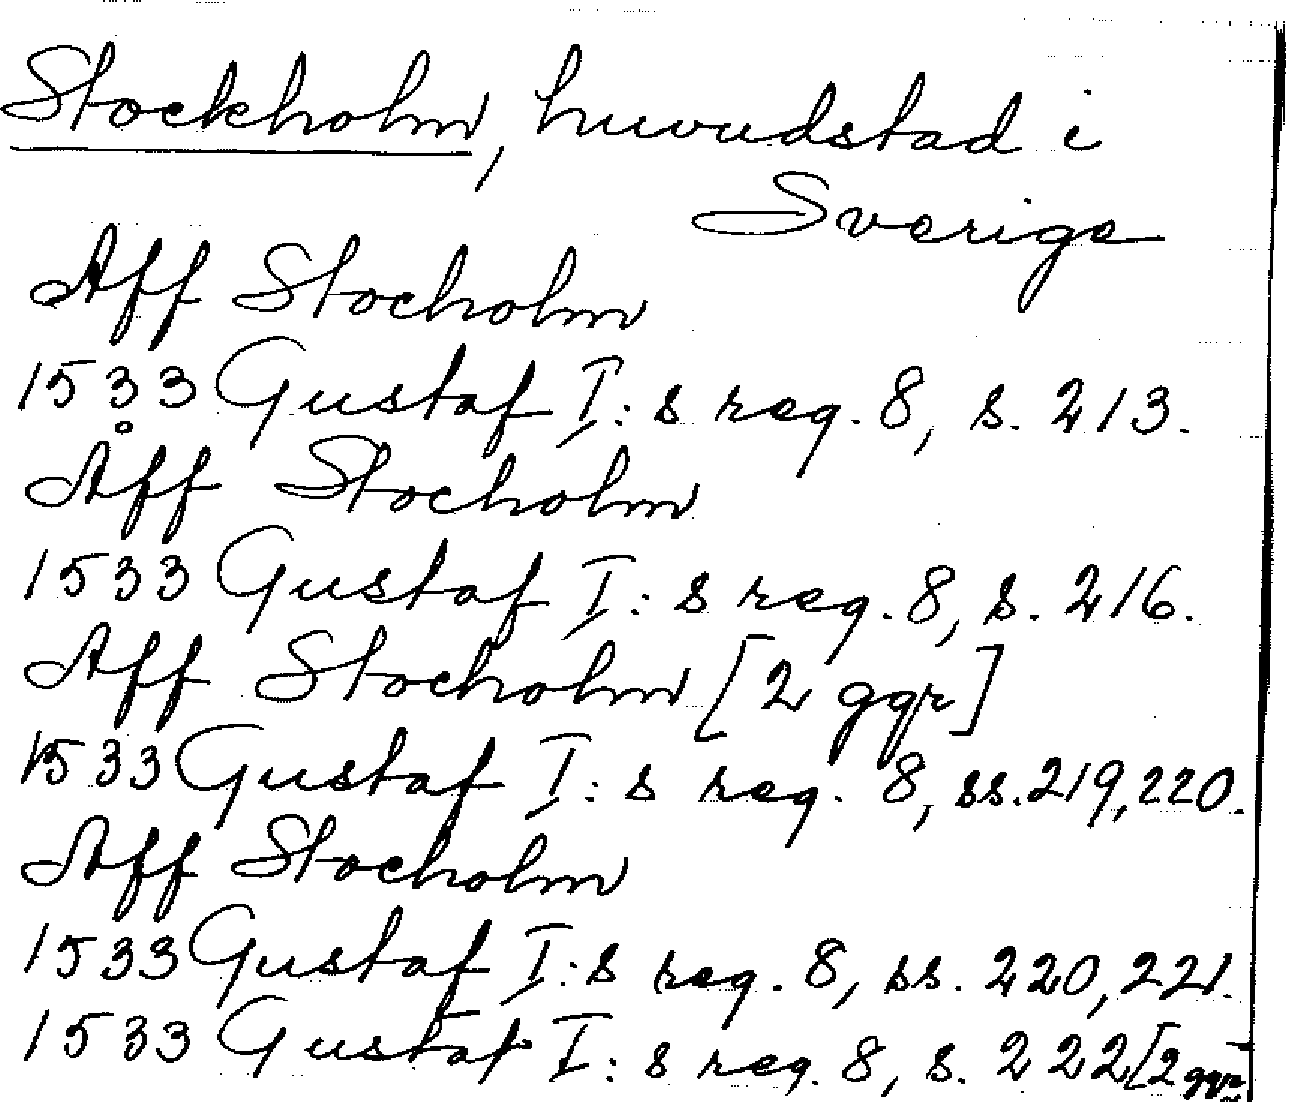 Stockholm, huvudstad i
Sverige
Aff Stocholm
1533 Gustaf I:s reg. 8, s. 213.
Åff Stocholm
1533 Gustaf I:s reg. 8, s. 216.
Aff Stocholm [2 ggr]
1533 Gustaf I:s reg. 8, ss. 219, 220.
Aff Stocholm
1533 Gustaf I:s reg. 8, ss. 220, 221.
1533 Gustaf I:s reg. 8, s. 222 [2 ggr